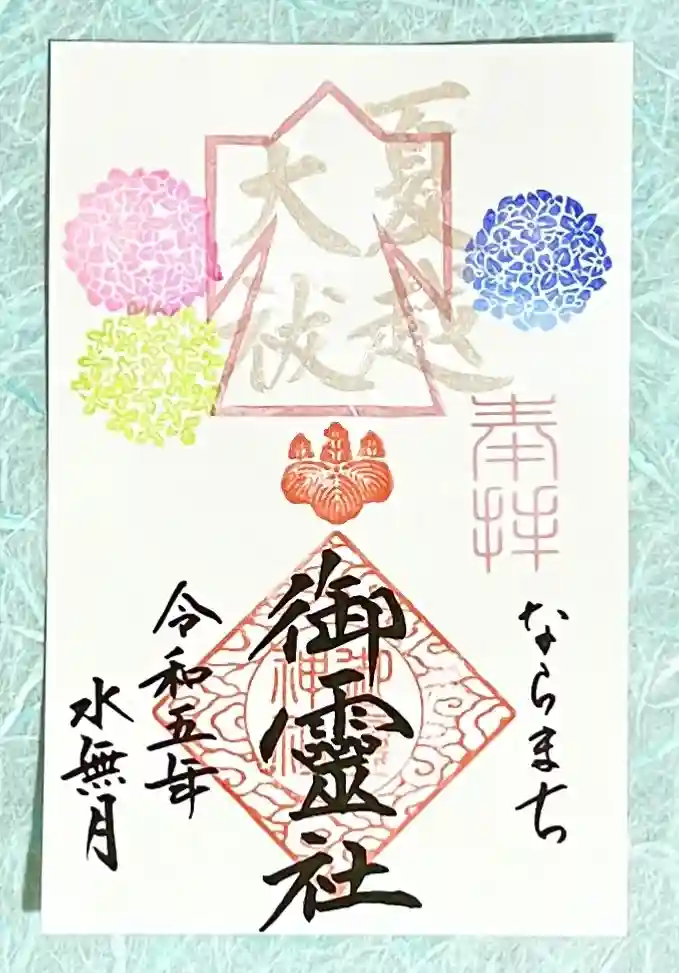 夏越
大祓
奉拝
ならまち
御霊神社
御靈社
令和五年
水無月